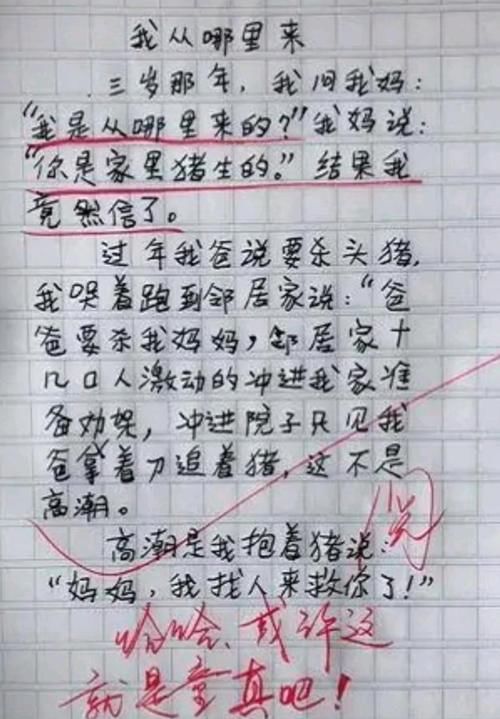 我从哪里来
三岁那年，我问我妈：
“我是从哪里来的？”我妈说：
“你是家里猪生的。”结果我
竟然信了。
过年我爸说要杀头猪，
我哭着跑到邻居家说：“爸
爸要杀我妈妈，邻居家十
几口人激动的冲进我家准
备劝架，冲进院子只见我
爸拿着刀追着猪，这不是
高潮。
高潮是我抱着猪说：
“妈妈，我找人来救你了！”
阅
哈哈、或许这
就是童真吧！